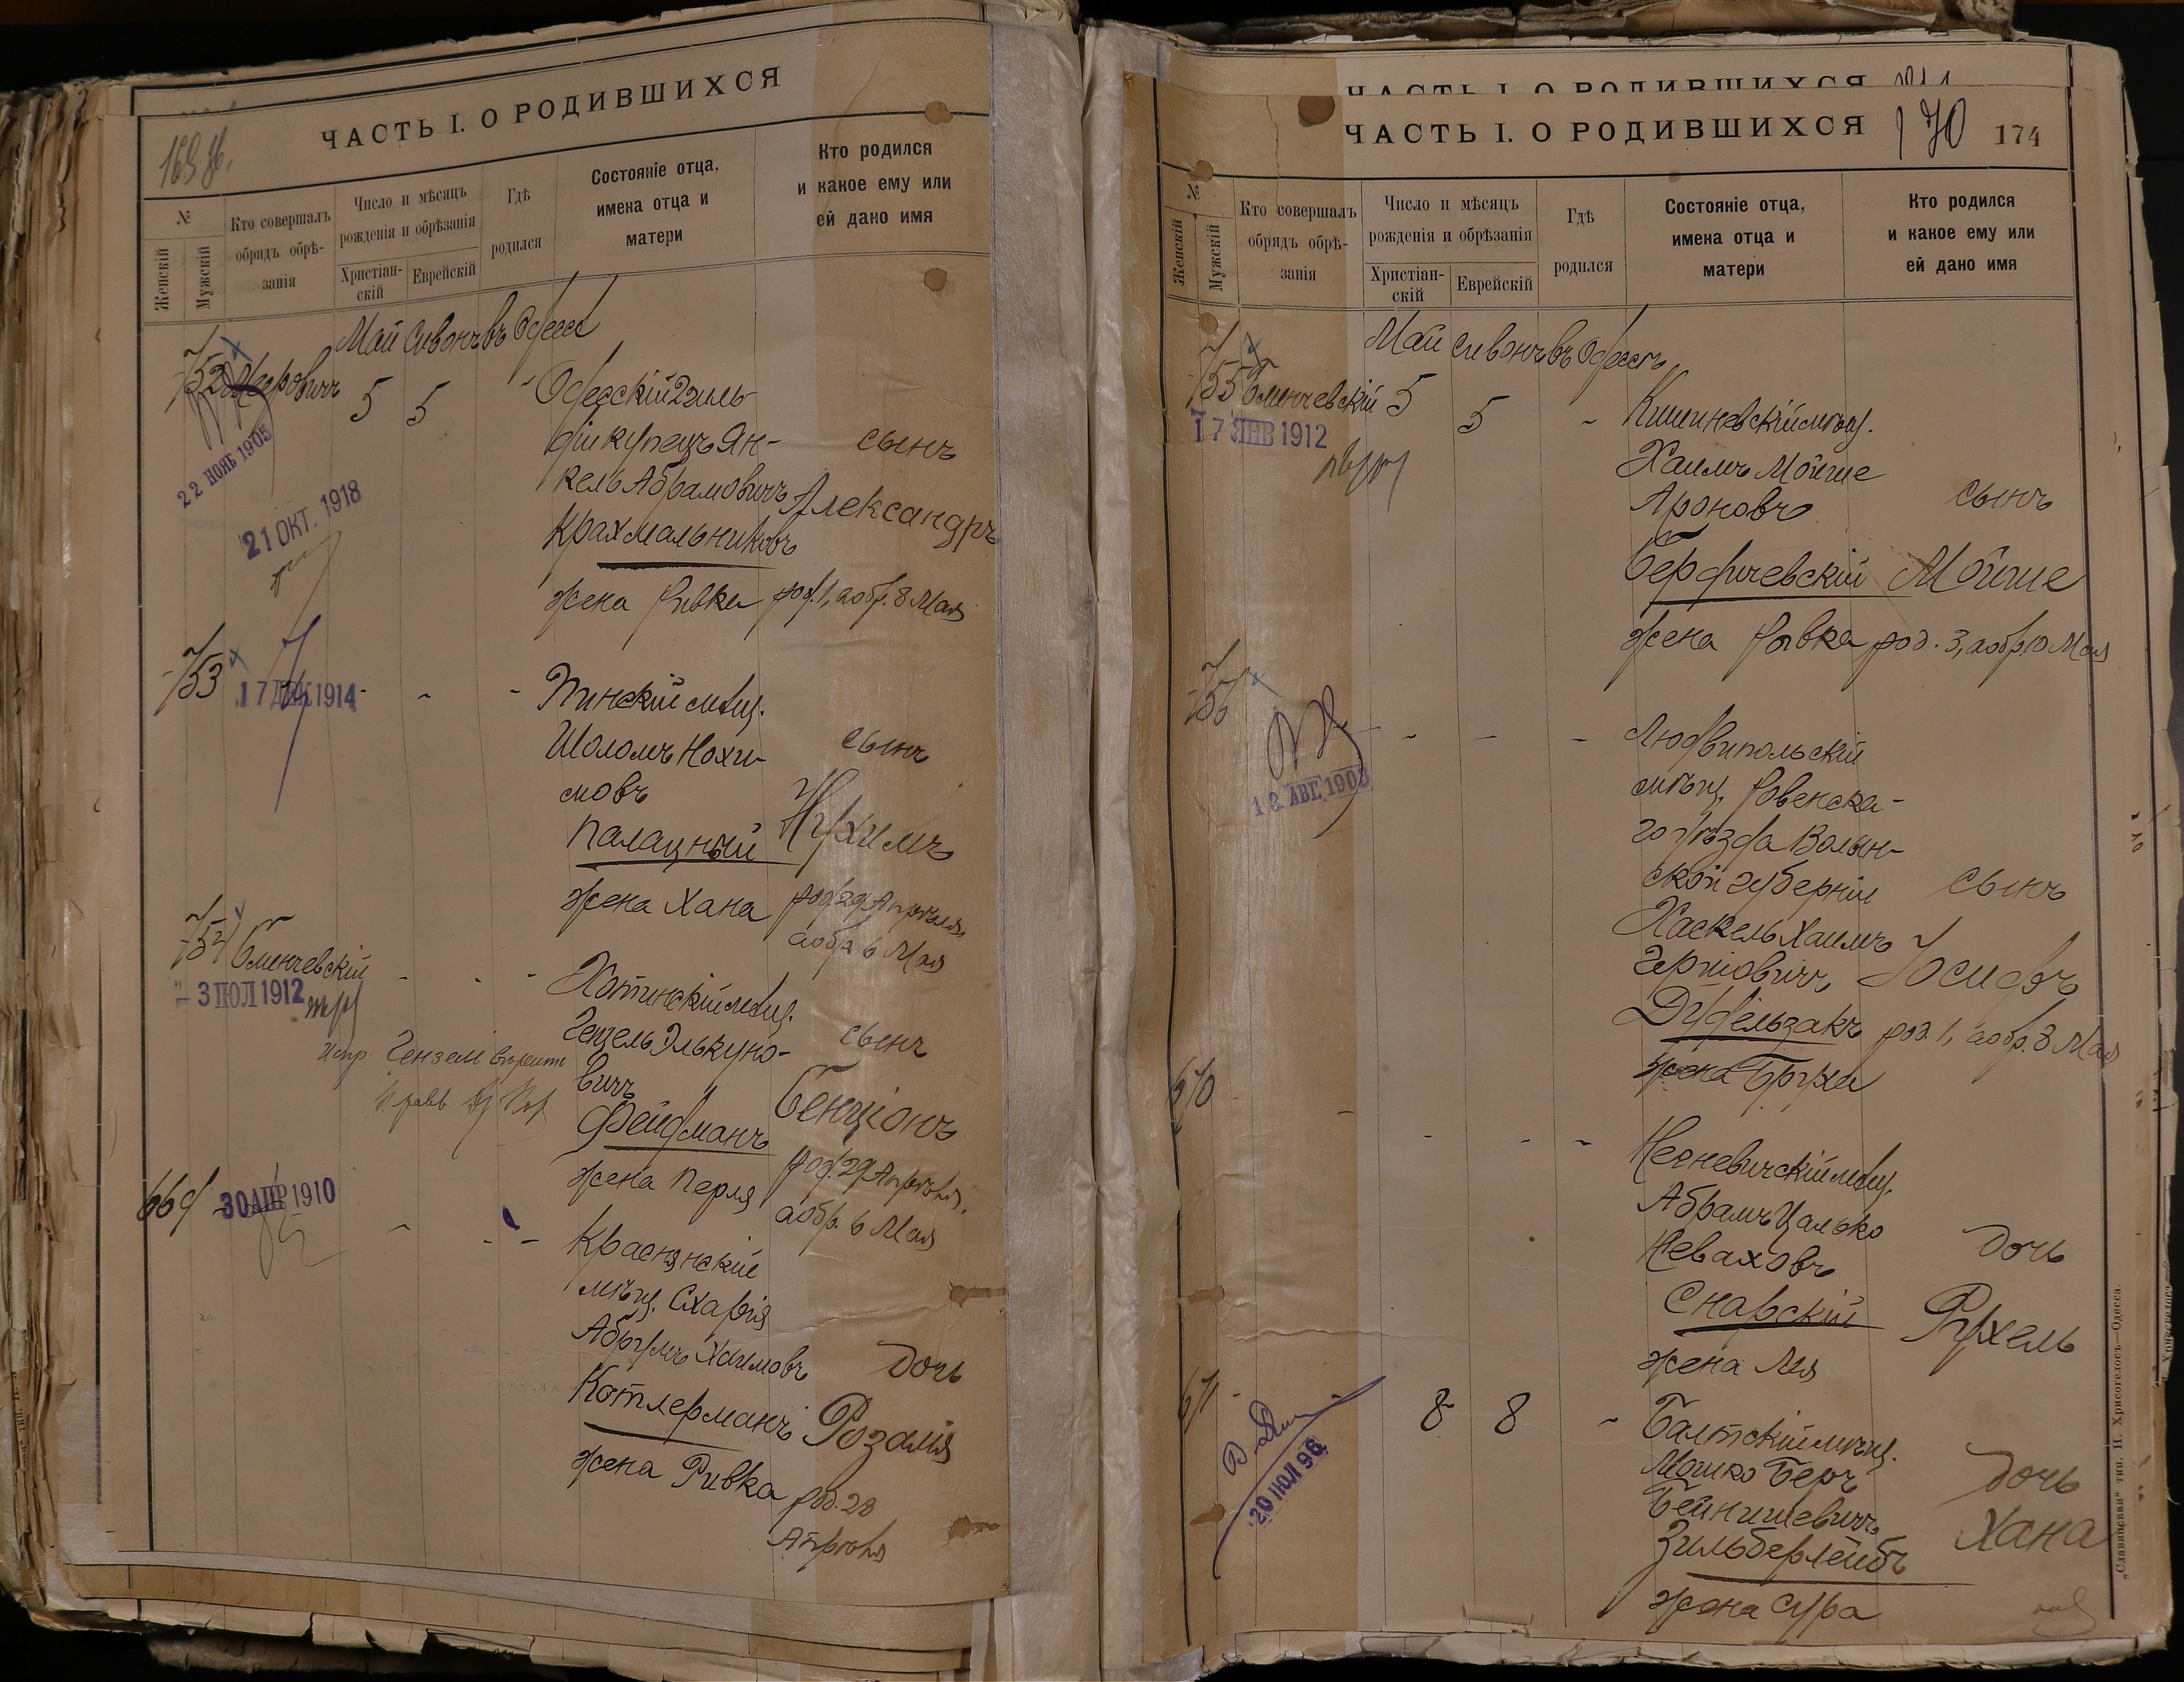 ЧАСТЬ I. О РОДИВШИХСЯ
169 об.
№
Женскій
Мужскій
Кто совершалъ
обрядъ обрѣ-
занія
Число и мѣсяцъ
рожденія и обрѣзанія
Христіан-
скій
Еврейскій
Гдѣ
родился
Состояніе отца,
имена отца и
матери
Кто родился
и какое ему или
ей дано имя
Май Сивонъ въ Одессѣ
752
5 5 - Одесскій 2 гиль-
діи купецъ Ян-
кель Абрамовичъ
Крахмальниковъ
жена Ривка
сынъ
Александръ
род. 1, а обр. 8 Мая
22 НОЯБ 1905
21 ОКТ. 1918
753
17 ДЕК 1914
- - - Пинскій мѣщ.
Шоломъ Нохи-
мовъ
Палацный
жена Хана
сынъ
Нухимъ
род. 29 Апрѣля,
а обр. 6 Мая
754 Сменчевскій
3 ІЮЛ 1912
- - - Хотинскій мѣщ.
Гецель Элькуно-
вичъ
Фейфманъ
жена Перля
сынъ
Бенціонъ
род. 29 Апрѣля,
а обр. 6 Мая
669
30 АПР 1910
- - - Краснянскій
мѣщ. Схарія
Абрумъ Хаимовъ
Котлерманъ
жена Ривка
дочь
Розалія
род. 28
Апрѣля
ЧАСТЬ I. О РОДИВШИХСЯ
ЧАСТЬ I. О РОДИВШИХСЯ
170
174
№
Женскій
Мужскій
Кто совершалъ
обрядъ обрѣ-
занія
Число и мѣсяцъ
рожденія и обрѣзанія
Христіан-
скій
Еврейскій
Гдѣ
родился
Состояніе отца,
имена отца и
матери
Кто родился
и какое ему или
ей дано имя
Май Сивонъ въ Одессѣ
755 Сменчевскій
17 ЯНВ 1912
5 5 - Кишиневскій мѣщ.
Хаимъ Мойше
Ароновъ
Бердичевскій
жена Ривка
сынъ
Мойше
род. 3, а обр. 10 Мая
756
- - - Людвипольскій
мѣщ. Ровенска-
го уѣзда Волын-
ской губерніи
Хаскель Хаимъ
Гершовичъ
Дудельзакъ
жена Бруха
сынъ
Іосифъ
род. 1, а обр. 8 Мая
670
- - - - Несневичскій мѣщ.
Абрамъ Цалько
Неваховъ
Снарскій
жена Лея
дочь
Рухель
671
20 ІЮЛ 96
8 8 - Балтскій мѣщ.
Мошко Беръ
Бейнишевичъ
Зильберлейбъ
жена Сура
дочь
Хана
„Славянская“ тип. Н. Хрисогелосъ—Одесса.